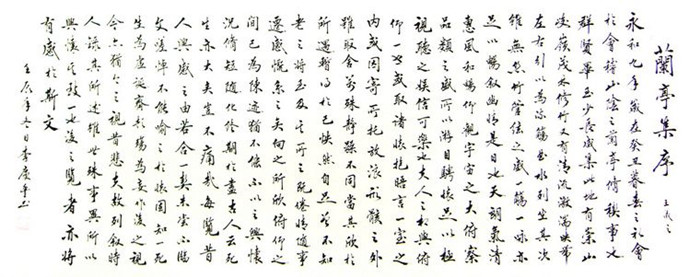 蘭亭集序
王羲之
永和九年歲在癸丑暮春之初會
於會稽山陰之蘭亭脩稧事也
群賢畢至少長咸集此地有崇山
峻嶺茂林修竹又有清流激湍映帶
左右引以為流觴曲水列坐其次
雖無絲竹管弦之盛一觴一詠亦
足以暢敘幽情是日也天朗氣清
惠風和暢仰觀宇宙之大俯察
品類之盛所以游目騁懷足以極
視聽之娛信可樂也夫人之相與俯
仰一世或取諸懷抱晤言一室之
內或因寄所托放浪形骸之外
雖取舍萬殊靜躁不同當其欣於
所遇暫得於己快然自足曾不知
老之將至及其所之既倦情隨事
遷感慨系之矣向之所欣俯仰之
間已為陳跡猶不能不以之興懷
況脩短隨化終期於盡古人云死
生亦大矣豈不痛哉每覽昔
人興感之由若合一契未嘗不臨
文嗟悼不能喻之於懷固知一死
生為虛誕齊彭殤為妄作後之視
今亦猶今之視昔悲夫故列敘時
人錄其所述雖世殊事異所以
興懷其致一也後之覽者亦將
有感於斯文
壬辰年